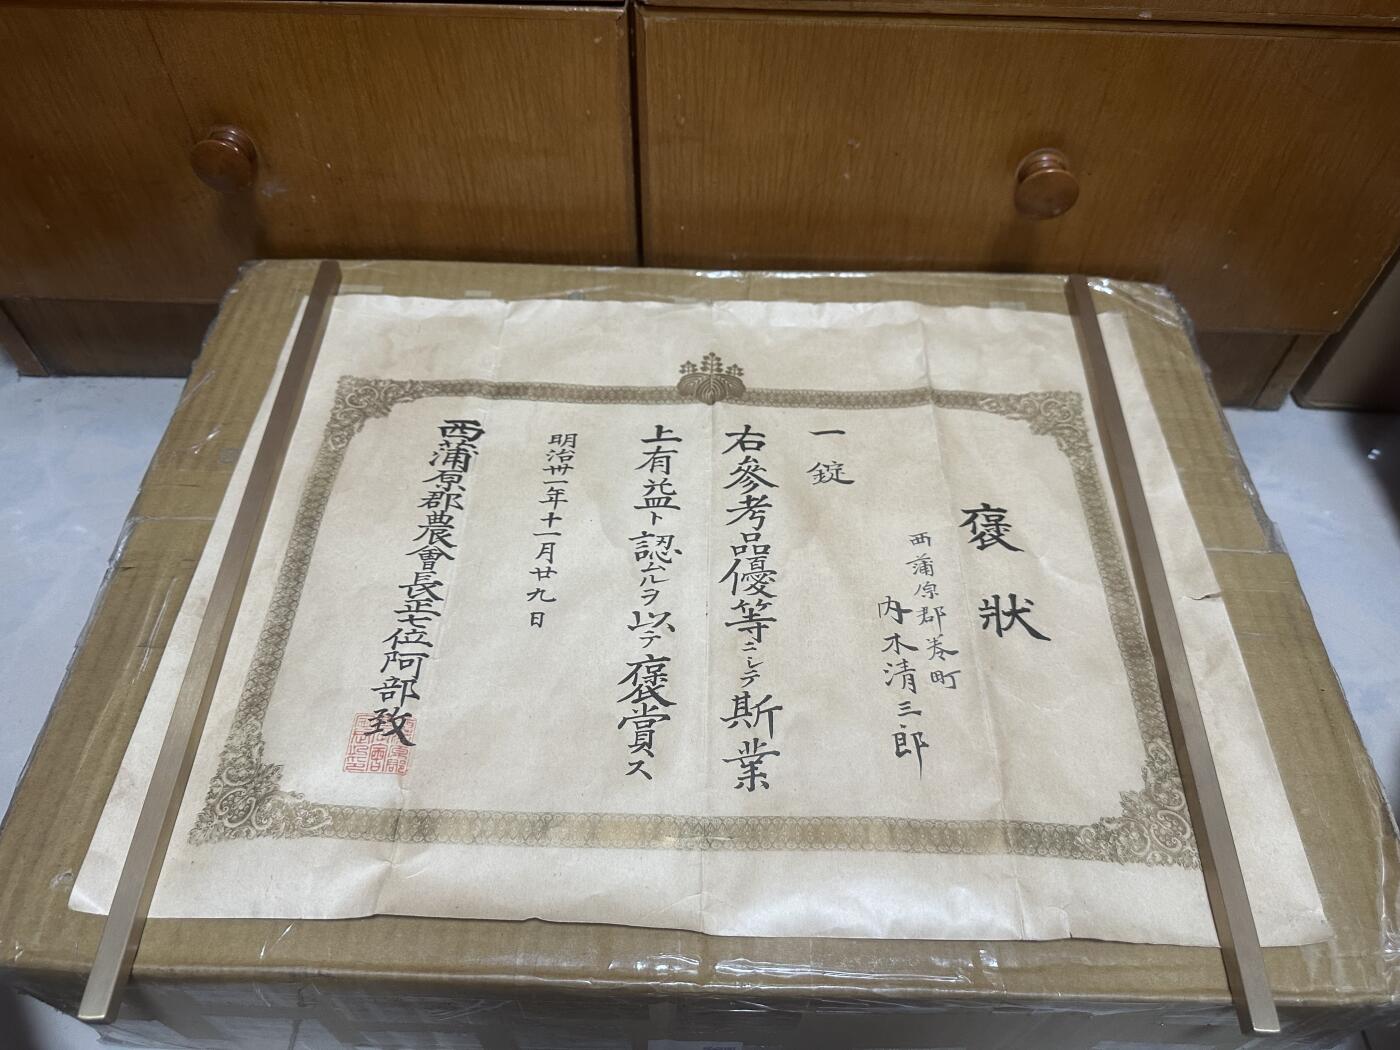 褒狀
西蒲原郡巻町
内木清三郎
一錠
右參考品優等ニシテ斯業
上有益ト認ムルヲ以テ褒賞ス
明治卅一年十一月廿九日
西蒲原郡農會長正七位阿部致